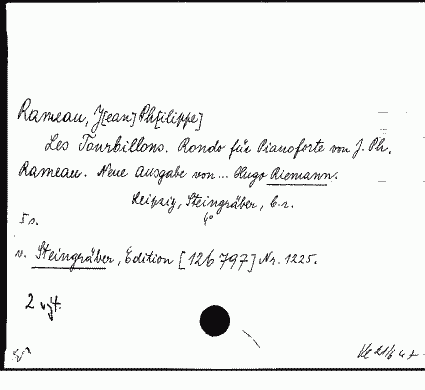 Rameau, J[ean] Ph[ilippe]
Les Tourbillons. Rondo für Pianoforte von J. Ph.
Rameau. Neue Ausgabe von... Hugo Riemann.
Leipzig, Steingräber, b.r.
4°
5 s.
v. Steingräber, Edition [126797] Nr. 1225.
2